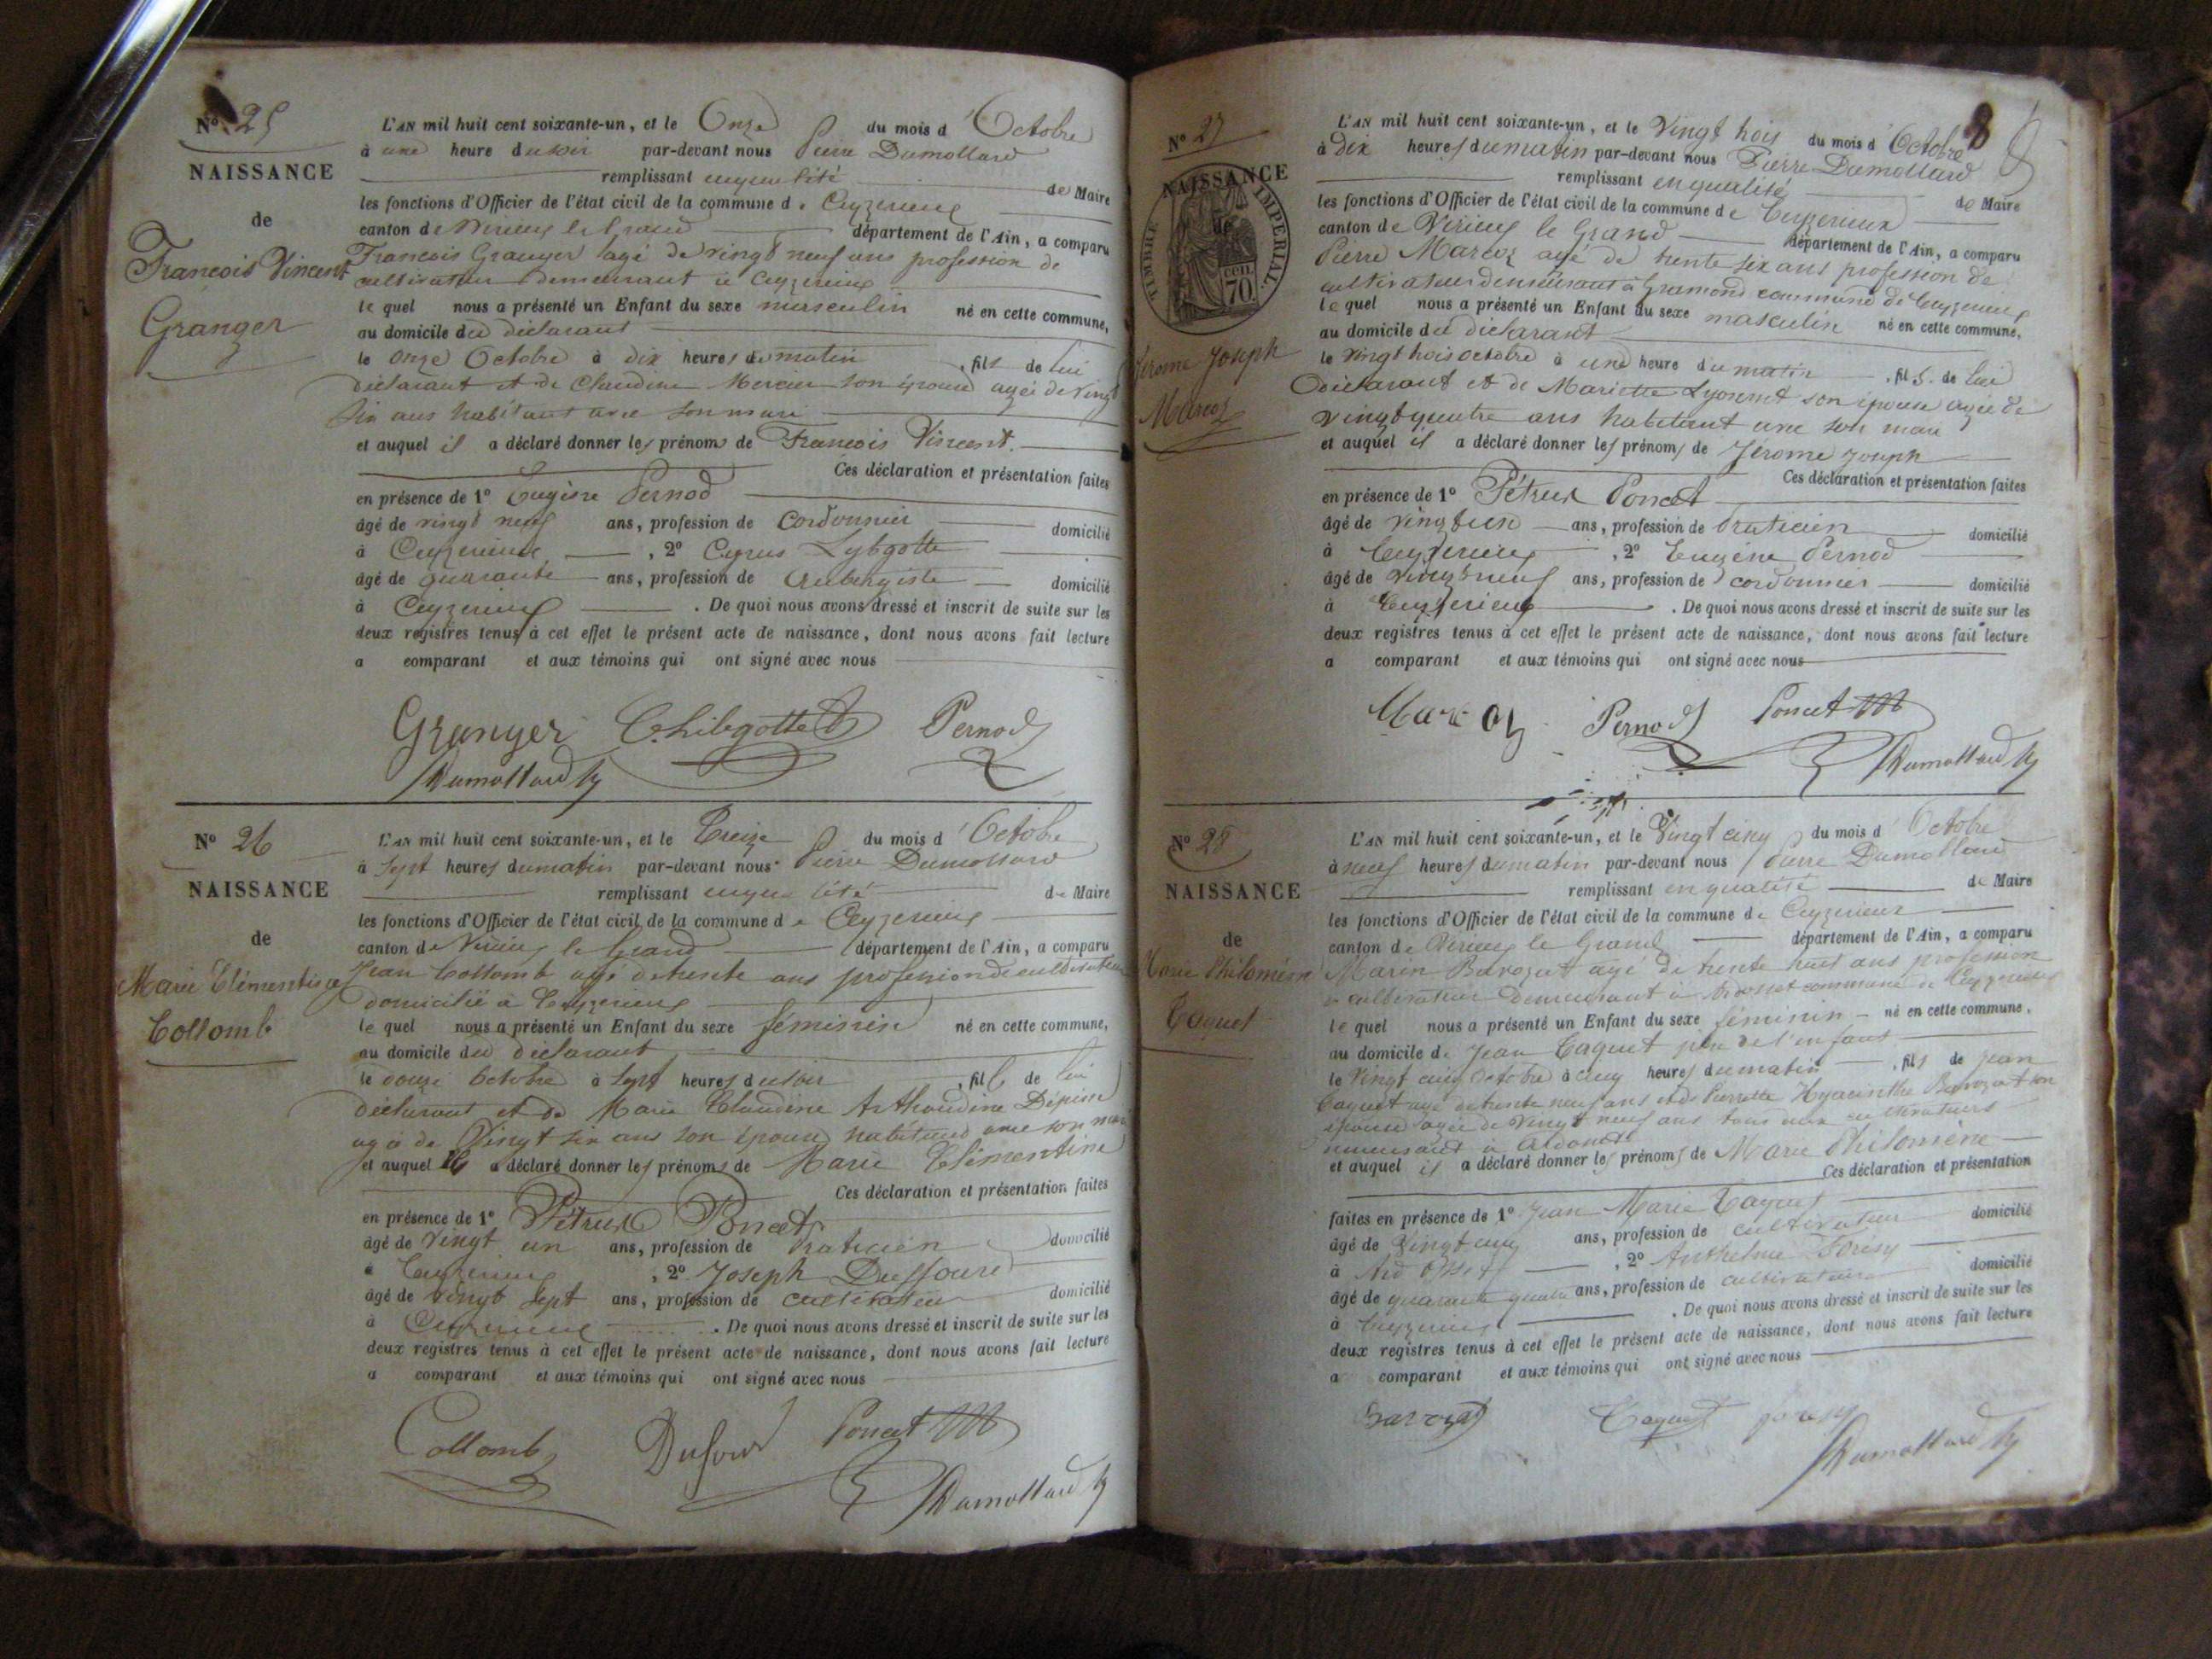 No 25
NAISSANCE
de
François Vincent
Granger
L'AN mil huit cent soixante-un, et le Onze du mois d'Octobre
à une heure du soir par-devant nous Pierre Dumollard
remplissant en qualité de Maire
les fonctions d'Officier de l'état civil de la commune de Ceyzerieux
canton de Virieux le Grand département de l'Ain, a comparu
François Granger agé de vingt neuf ans profession de
cultivateur demeurant à Ceyzerieux
le quel nous a présenté un Enfant du sexe masculin né en cette commune,
au domicile du déclarant
le onze Octobre à dix heures du matin, fils de lui
déclarant et de Claudine Mercier son épouse agée de vingt
six ans habitant avec son mari
et auquel il a déclaré donner les prénoms de François Vincent.
Ces déclaration et présentation faites
en présence de 1º Eugène Pernod
âgé de vingt neuf ans, profession de Cordonnier domicilié
à Ceyzerieux, 2º Cyrus Lybgotte
âgé de quarante ans, profession de Aubergiste domicilié
à Ceyzerieux. De quoi nous avons dressé et inscrit de suite sur les
deux registres tenus à cet effet le présent acte de naissance, dont nous avons fait lecture
a comparant et aux témoins qui ont signé avec nous
Granger C. Libgotte Pernod
Dumollard
No 26
NAISSANCE
de
Marie Clémentine
Collomb
L'AN mil huit cent soixante-un, et le Treize du mois d'Octobre
à Sept heures du matin par-devant nous Pierre Dumollard
remplissant en qualité de Maire
les fonctions d'Officier de l'état civil de la commune de Ceyzerieux
canton de Virieux le Grand département de l'Ain, a comparu
Jean Collomb agé de trente ans profession de cultivateur
domicilié à Ceyzerieux
le quel nous a présenté un Enfant du sexe féminin né en cette commune,
au domicile du déclarant
le douze Octobre à Sept heures du soir, fille de lui
déclarant et de Marie Claudine
agée de Vingt six ans son épouse habitant avec son mari
et auquel il a déclaré donner les prénoms de Marie Clémentine
Ces déclaration et présentation faites
en présence de 1º Pétrus Poncet
âgé de Vingt un ans, profession de Praticien domicilié
à Ceyzerieux, 2º Joseph Duffourd
âgé de Vingt Sept ans, profession de cultivateur domicilié
à Ceyzerieux. De quoi nous avons dressé et inscrit de suite sur les
deux registres tenus à cet effet le présent acte de naissance, dont nous avons fait lecture
a comparant et aux témoins qui ont signé avec nous
Collomb Dufour Poncet
Dumollard
8
No 27
NAISSANCE
de
TIMBRE IMPERIAL
70 cen
Jérome Joseph
Marcoz
L'AN mil huit cent soixante-un, et le Vingt trois du mois d'Octobre
à Dix heures du matin par-devant nous Pierre Dumollard
remplissant en qualité de Maire
les fonctions d'Officier de l'état civil de la commune de Ceyzerieux
canton de Virieux le Grand département de l'Ain, a comparu
Pierre Marcoz agé de trente six ans profession de
cultivateur demeurant à Gramond commune de Ceyzerieux
le quel nous a présenté un Enfant du sexe masculin né en cette commune,
au domicile du déclarant
le Vingt trois octobre à une heure du matin, fils de lui
déclarant et de Mariette Lyonnet son épouse agée de
vingt quatre ans habitant avec son mari
et auquel il a déclaré donner les prénoms de Jérome Joseph
Ces déclaration et présentation faites
en présence de 1º Pétrus Poncet
âgé de Vingt un ans, profession de Praticien domicilié
à Ceyzerieux, 2º Eugène Pernod
âgé de Vingt neuf ans, profession de cordonnier domicilié
à Ceyzerieux. De quoi nous avons dressé et inscrit de suite sur les
deux registres tenus à cet effet le présent acte de naissance, dont nous avons fait lecture
a comparant et aux témoins qui ont signé avec nous
Marcoz Pernod Poncet
Dumollard
No 28
NAISSANCE
de
Marie Philomène
Caquet
L'AN mil huit cent soixante-un, et le Vingt cinq du mois d'Octobre
à neuf heures du matin par-devant nous Pierre Dumollard
remplissant en qualité de Maire
les fonctions d'Officier de l'état civil de la commune de Ceyzerieux
canton de Virieux le Grand département de l'Ain, a comparu
Marin Bavozat agé de trente huit ans profession
de cultivateur demeurant à commune de Ceyzerieux
le quel nous a présenté un Enfant du sexe féminin né en cette commune,
au domicile de Jean Caquet père de l'enfant
le Vingt cinq Octobre à cinq heures du matin, fils de Jean
Caquet agé de trente neuf ans et de Pierrette Hyacinthe Bavozat son
épouse agée de vingt neuf ans tous deux cultivateurs
demeurant à
et auquel il a déclaré donner les prénoms de Marie Philomène
Ces déclaration et présentation
faites en présence de 1º Jean Marie Caquet
âgé de Vingt cinq ans, profession de cultivateur domicilié
à, 2º Anthelme
âgé de quarante quatre ans, profession de cultivateur domicilié
à Ceyzerieux. De quoi nous avons dressé et inscrit de suite sur les
deux registres tenus à cet effet le présent acte de naissance, dont nous avons fait lecture
a comparant et aux témoins qui ont signé avec nous
Bavozat Caquet
Dumollard